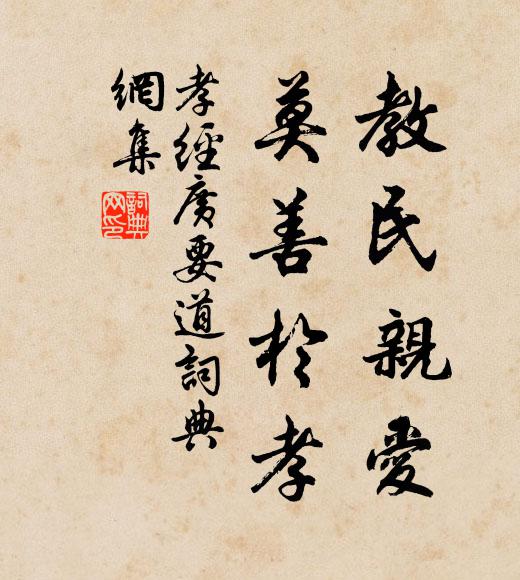 教民親愛
莫善於孝
孝經廣要道詞典
網集
詞典
网印